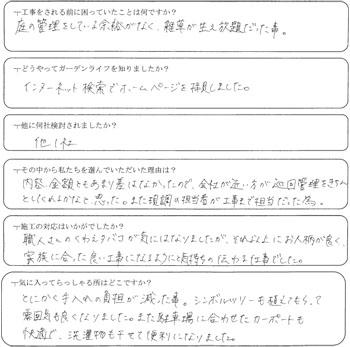 工事をされる前に困っていたことは何ですか?
庭の管理をしている余裕がなく、雑草が生え放題だった事。
どうやってガーデンライフを知りましたか?
インターネット検索でホームページを拝見しました。
他に何社検討されましたか?
他1社
その中から私たちを選んでいただいた理由は?
内容、金額ともあまり差はなかったので、会社が近い方が巡回管理をきちん
としてくれるかなと思った。また現調の担当者が工事まで担当だった為。
施工の対応はいかがでしたか?
職人さんのくわえタバコが気にはなりましたが、それ以上にお人柄が良く、
家族に合った良い工事になるようにと気持ちの伝わる仕事でした。
気に入ってらっしゃる所はどこですか?
とにかく手入れの負担が減った事。シンボルツリーも植えてもらって
雰囲気も良くなりました。また駐車場に合わせたカーポートも
快適で、洗濯物も干せて便利になりました。